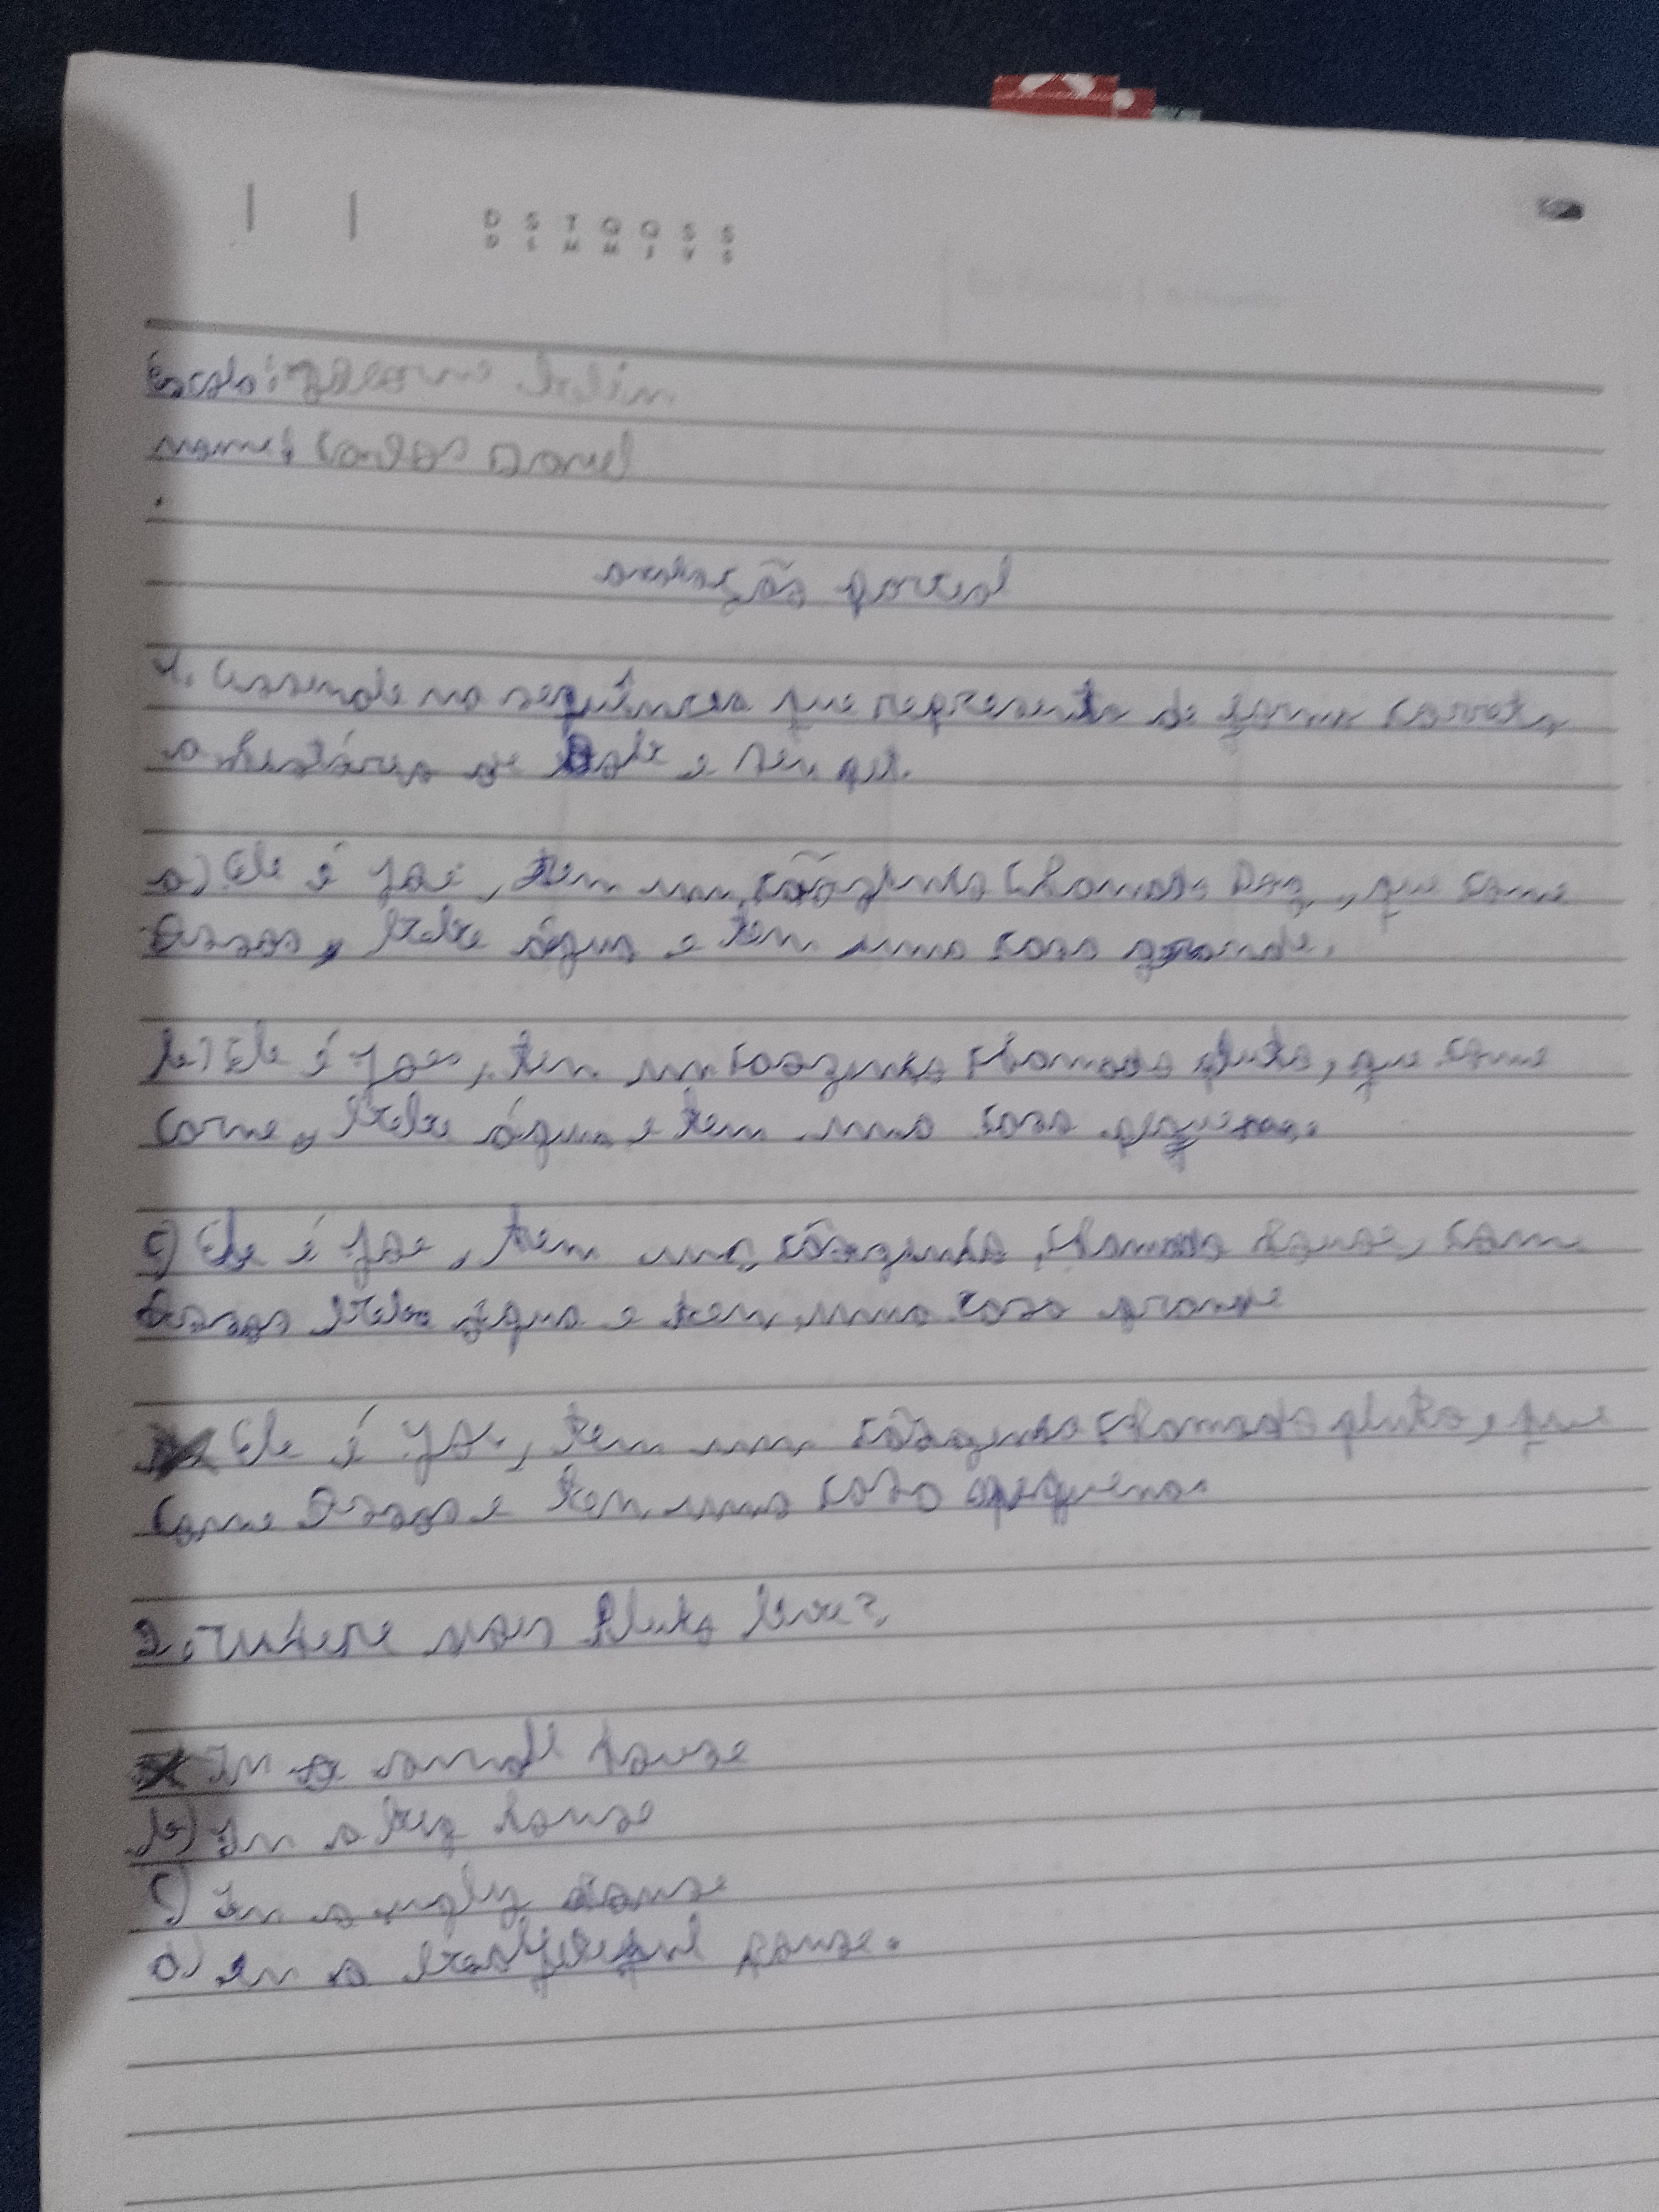 D S T Q Q S S
D L M M J V S
nome: Carlos Daniel
avaliação parcial
1. Assinale na sequência que representa de forma correta
a história de e seu pet.
a) Ele é Joe, tem um cãozinho chamado Dog, que come
Ossos, bebe água e tem uma casa grande.
b) Ele é Joe, tem um caozinho chamado pluto, que come
carne, bebe água e tem uma casa pequena.
c) Ele é Joe, tem um cãozinho, chamado house, come
Ossos bebe água e tem uma casa grande
Ele é Joe, tem um cãozinho chamado pluto, que
come Ossos e tem uma casa pequena.
2. Pluto live?
In a small house
b) In a big house
c) in a ugly house
d) in a house.